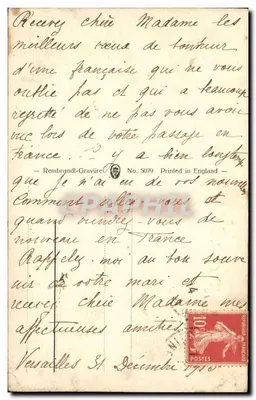 Recevez chère Madame les
meilleurs vœux de bonheur
d'une française qui ne vous
oublie pas et qui a beaucoup
regretté de ne pas vous avoir
vue lors de votre passage en
France. Il y a bien longtemps
Rembrandt-Gravüre No. 5079 Printed in England
que je n'ai eu de vos nouvelles
Comment allez vous et
quand viendrez-vous de
nouveau en France
Rappelez moi au bon souve
nir de votre mari et
recevez chère Madame mes
affectueuses amitiés
Versailles 31 Décembre
10c
POSTES